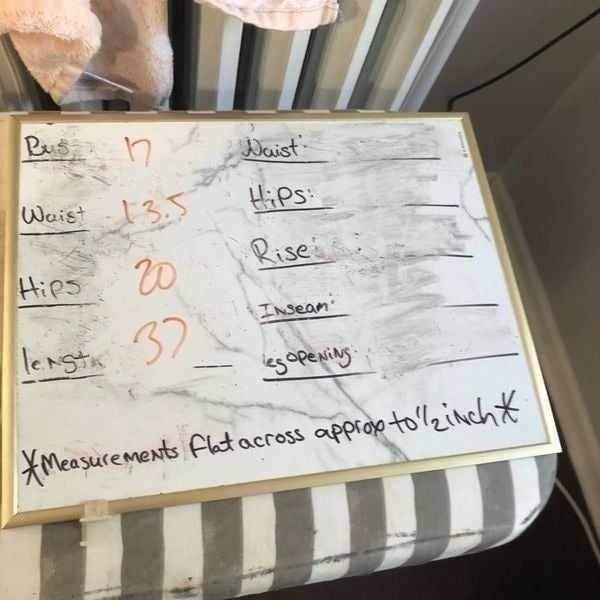 Bus 17 Waist:
Waist 13.5 Hips:
Hips 20 Rise:
Inseam:
lengt 37 leg opening
*Measurements flat across approx to 1/2 inch*